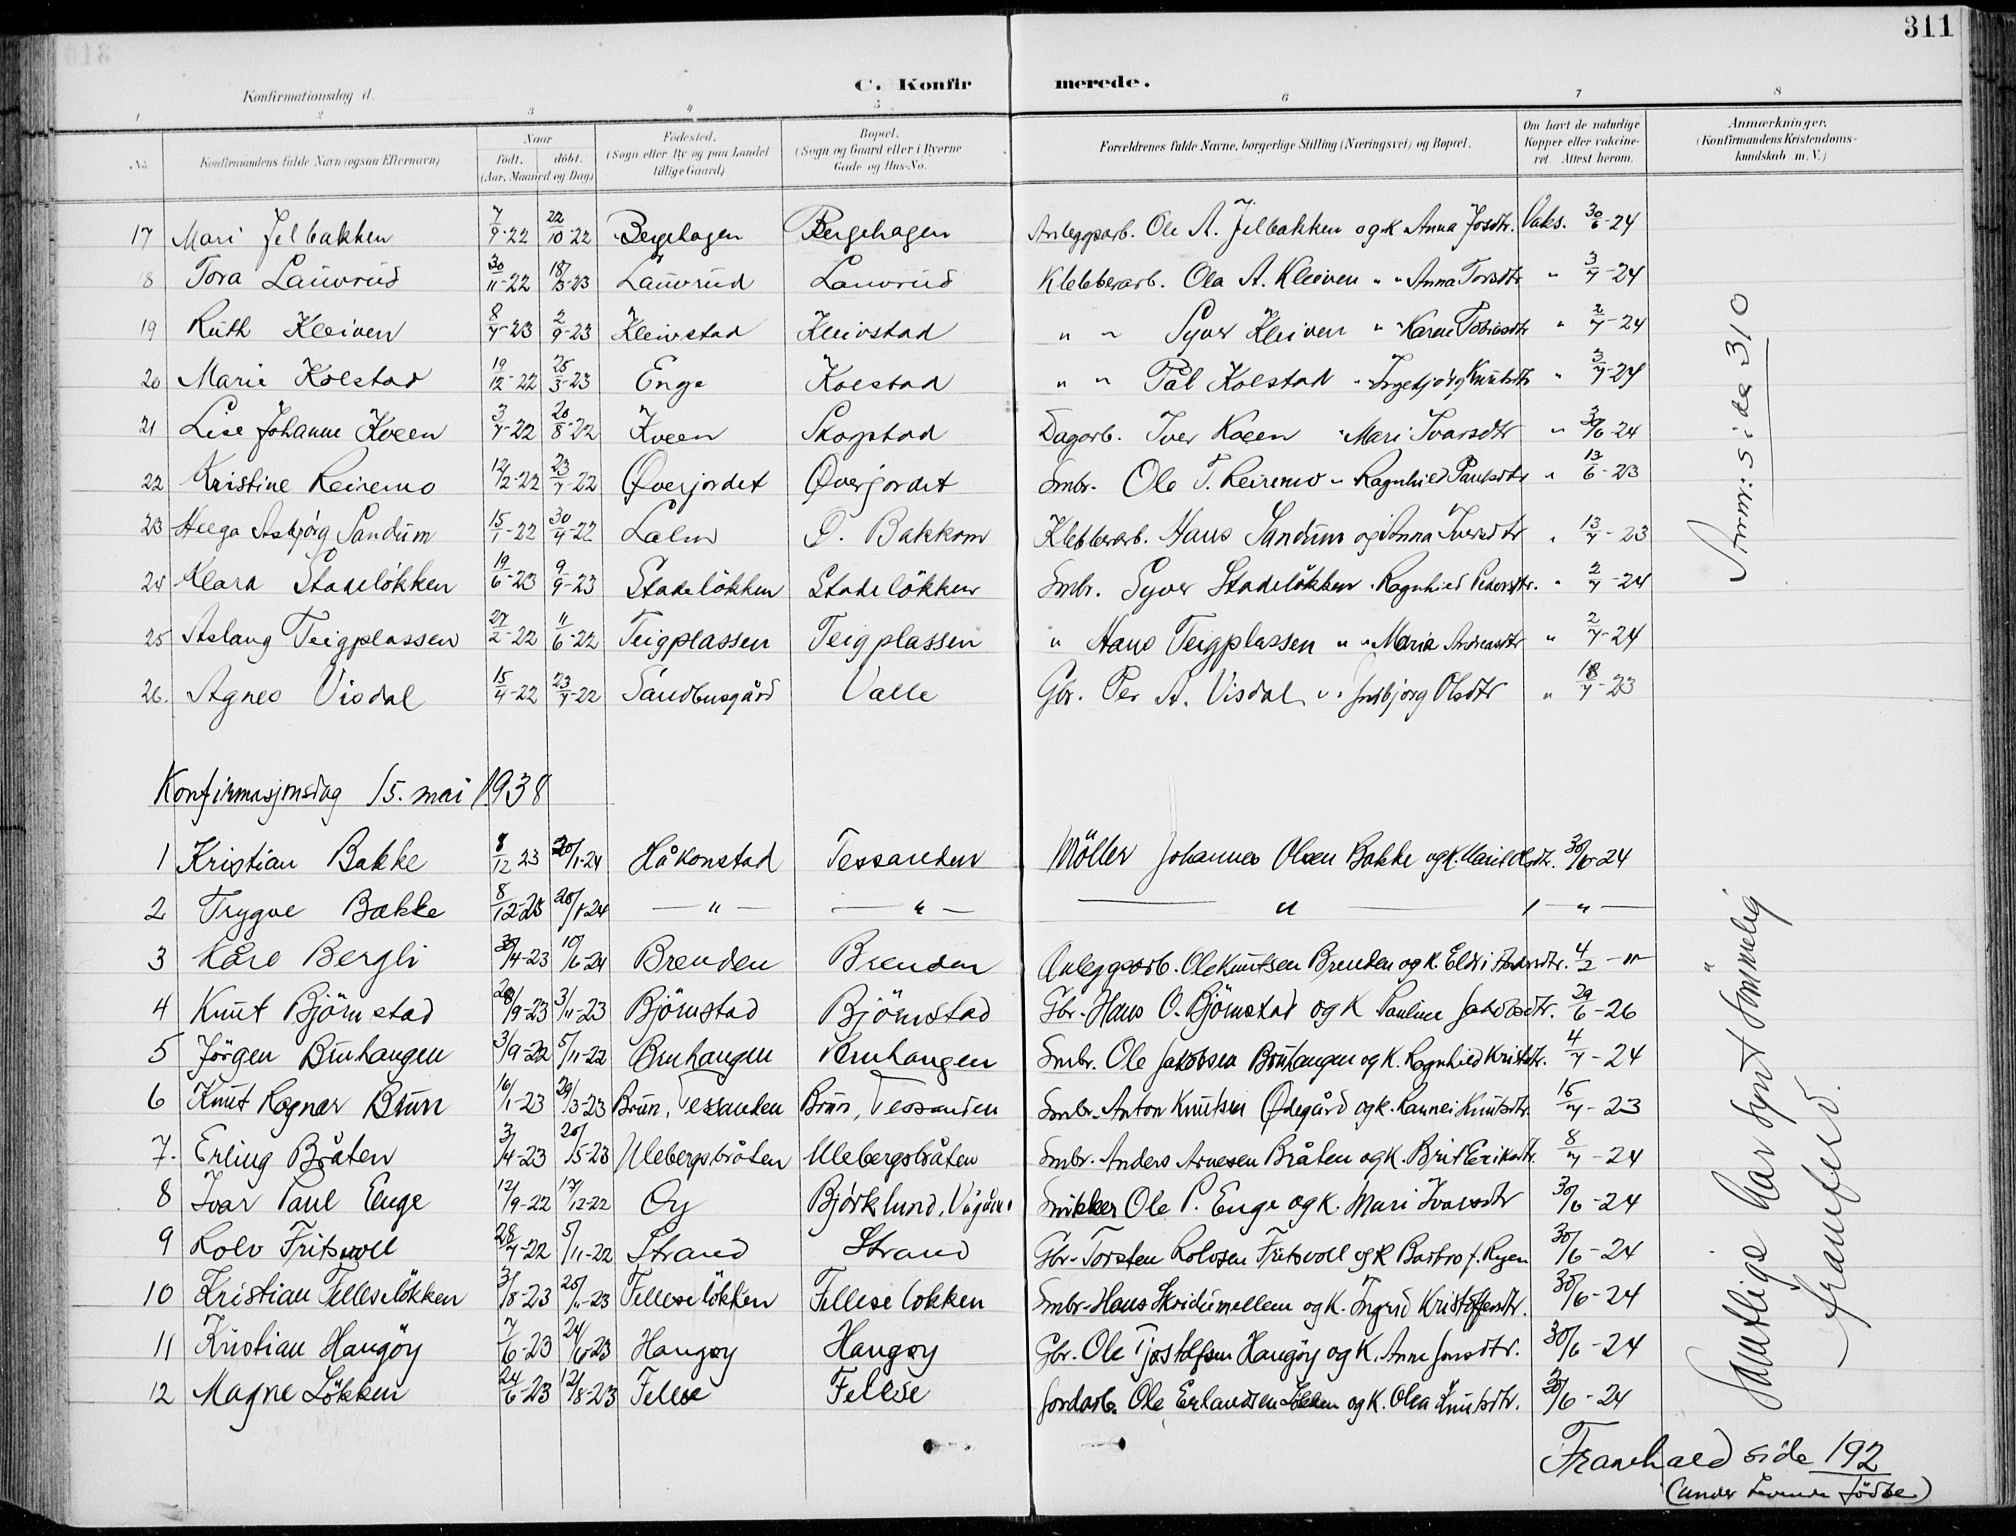 311
C. Konfirmerede.
Konfirmationsdag d.
1 2 3 4 5 6 7 8
No. Konfirmandens fulde Navn (ogsaa Efternavn) Naar født. døbt. (Aar, Maaned og Dag) Fødested. (Sogn eller By og paa Landet tillige Gaard) Bopæl. (Sogn og Gaard eller i Byerne Gade og Hus-No. Forældrenes fulde Navne, borgerlige Stilling (Næringsvei) og Bopæl. Om havt de naturlige Kopper eller vaccineret. Attest herom. Anmærkninger. (Konfirmandens Kristendomskundskab m. V.)
17 Mari Jelbakken 7/9-22 22/10-22 Bergehagen Bergehagen Anleggsarb. Ole A. Jelbakken og k Anna Josdtr. Vaks. 30/6-24
18 Tora Lauvrud 30/11-22 18/3-23 Lauvrud Lauvrud Klebberarb. Ola A. Kleiven " " Anna Torsdtr " 3/7-24
19 Ruth Kleiven 8/7-23 2/9-23 Kleivstad Kleivstad " " Syver Kleiven " Karen Tobiasdtr " 2/7-24
20 Marie Kolstad 19/12-22 25/3-23 Enge Kolstad " " Pål Kolstad " Ingebjørg Knutsdtr " 3/7-24
21 Lise Johanne Kveen 3/7-22 20/8-22 Kveen Skogstad Dagarb. Iver Kveen " Mari Ivarsdtr " 30/6-24
22 Kristine Leiremo 12/2-22 23/7-22 Øverjordet Øverjordet Smbr. Ole T. Leiremo " Ragnhild Paulsdtr " 13/6-23
23 Helga Asbjörg Sandum 15/1-22 30/4-22 Lalm Ø. Bakkom Klebberarb. Hans Sandum og Anna Iversdtr " 13/7-23
24 Klara Stadeløkken 19/6-23 9/9-23 Stadeløkken Stadeløkken Smbr. Syver Stadeløkken " Ragnhild Pedersdtr. " 2/7-24
25 Aslaug Teigplassen 27/2-22 11/6-22 Teigplassen Teigplassen " Hans Teigplassen " " Maria Andreasdtr " 2/7-24
26. Agnes Visdal 15/4-22 23/7-22 Sandbusgård Valle Gbr. Per A. Visdal " " Indbjørg Olsdtr " 18/7-23
Somm: side 310
Konfirmasjonsdag 15. mai 1938
1 Kristian Bakke 8/12 23 20/1-24 Håkonstad Tessanden Möller Johannes Olsen Bakke og k. Marit Olsdtr. 30/6-24
2 Trygve Bakke 8/12-23 20/1-24 — " — — " — — " — — " —
3 Kåre Bergli 30/4-23 10/6-24 Brenden Brenden Anleggsarb. Ole Knutsen Brenden og k. Eldri Andersdtr. 4/2 — " —
4 Knut Björnstad 28/9-23 3/11-23 Björnstad Björnstad Gbr. Hans O. Björnstad og k Pauline Jakobsdtr. 29/6-26
5 Jörgen Bruhaugen 3/9-22 5/11-22 Bruhaugen Bruhaugen Smbr. Ole Jakobsen Bruhaugen og k. Ragnhild Kristsdtr. 4/7-24
6 Knut Ragnar Brun 16/1-23 29/3-23 Brun, Tessanden Brun, Tessanden Smbr. Anton Knutsen Ødegård og k. Rannei Knutsdtr. 15/7-23
7. Erling Bråten 3/4-23 20/5-23 Ulebergsbråten Ulebergsbråten Smbr. Anders Arnesen Bråten og k. Brit Eriksdtr. 8/7-24
8 Ivar Paul Enge 12/9-22 17/12-22 Øy Björklund, Vågåmo Snikker Ole P. Enge og k. Mari Ivarsdtr 30/6-24
9 Rolv Fritsvoll 28/7-22 5/11-22 Strand Strand Gbr. Torsten Rolvsen Fritsvoll og k Barbro f. Ryen 30/6-24
10 Kristian Felleselökken 31/8-23 25/11-23 Felleselökken Felleselökken Smbr. Hans Skridumellem og k. Ingrid Kristoffersdtr. 30/6-24
11 Kristian Haugöy 7/6-23 24/6-23 Haugøy Haugøy Gbr. Ole Tjostolfsen Haugöy og k. Anne Jonsdtr. 30/6-24
12 Magne Lökken 24/6-23 12/8-23 Fellese Fellese Jordarb. Ole Erlandsen Lökken og k. Olea Knutsdtr. 30/6-24
Samtlige har synt sömmelig framferd.
Framhald side 192
(under Levende födte)